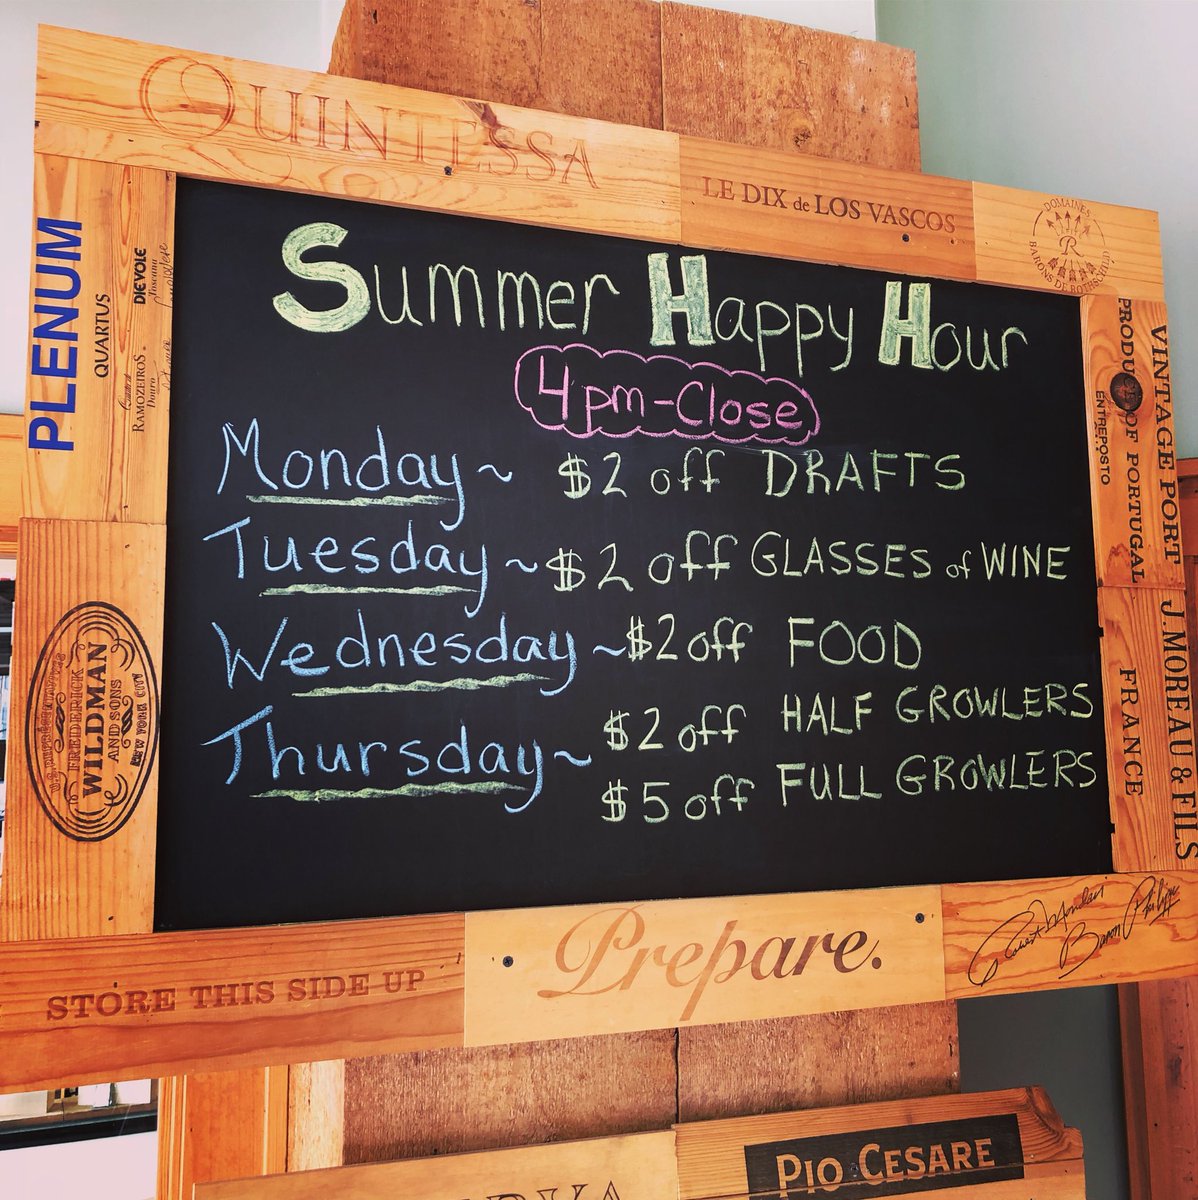 QUINTESSA
LE DIX de LOS VASCOS
DOMAINES
R
BARONS DE ROTHSCHILD
PLENUM
QUARTUS
DIEVOLE
Toscana
RAMOZEIROS
Douro
Summer Happy Hour
4pm-Close
Monday ~ $2 off DRAFTS
Tuesday ~ $2 off GLASSES of WINE
Wednesday ~ $2 off FOOD
Thursday ~ $2 off HALF GROWLERS
$5 off FULL GROWLERS
VINTAGE PORT
PRODUCT OF PORTUGAL
ENTREPOSTO
J. MOREAU & FILS
FRANCE
U.S. REPRESENTATIVES
FREDERICK
WILDMAN
AND SONS
NEW YORK CITY
STORE THIS SIDE UP
Prepare.
Robert Mondavi
Baron Philippe
PIO CESARE